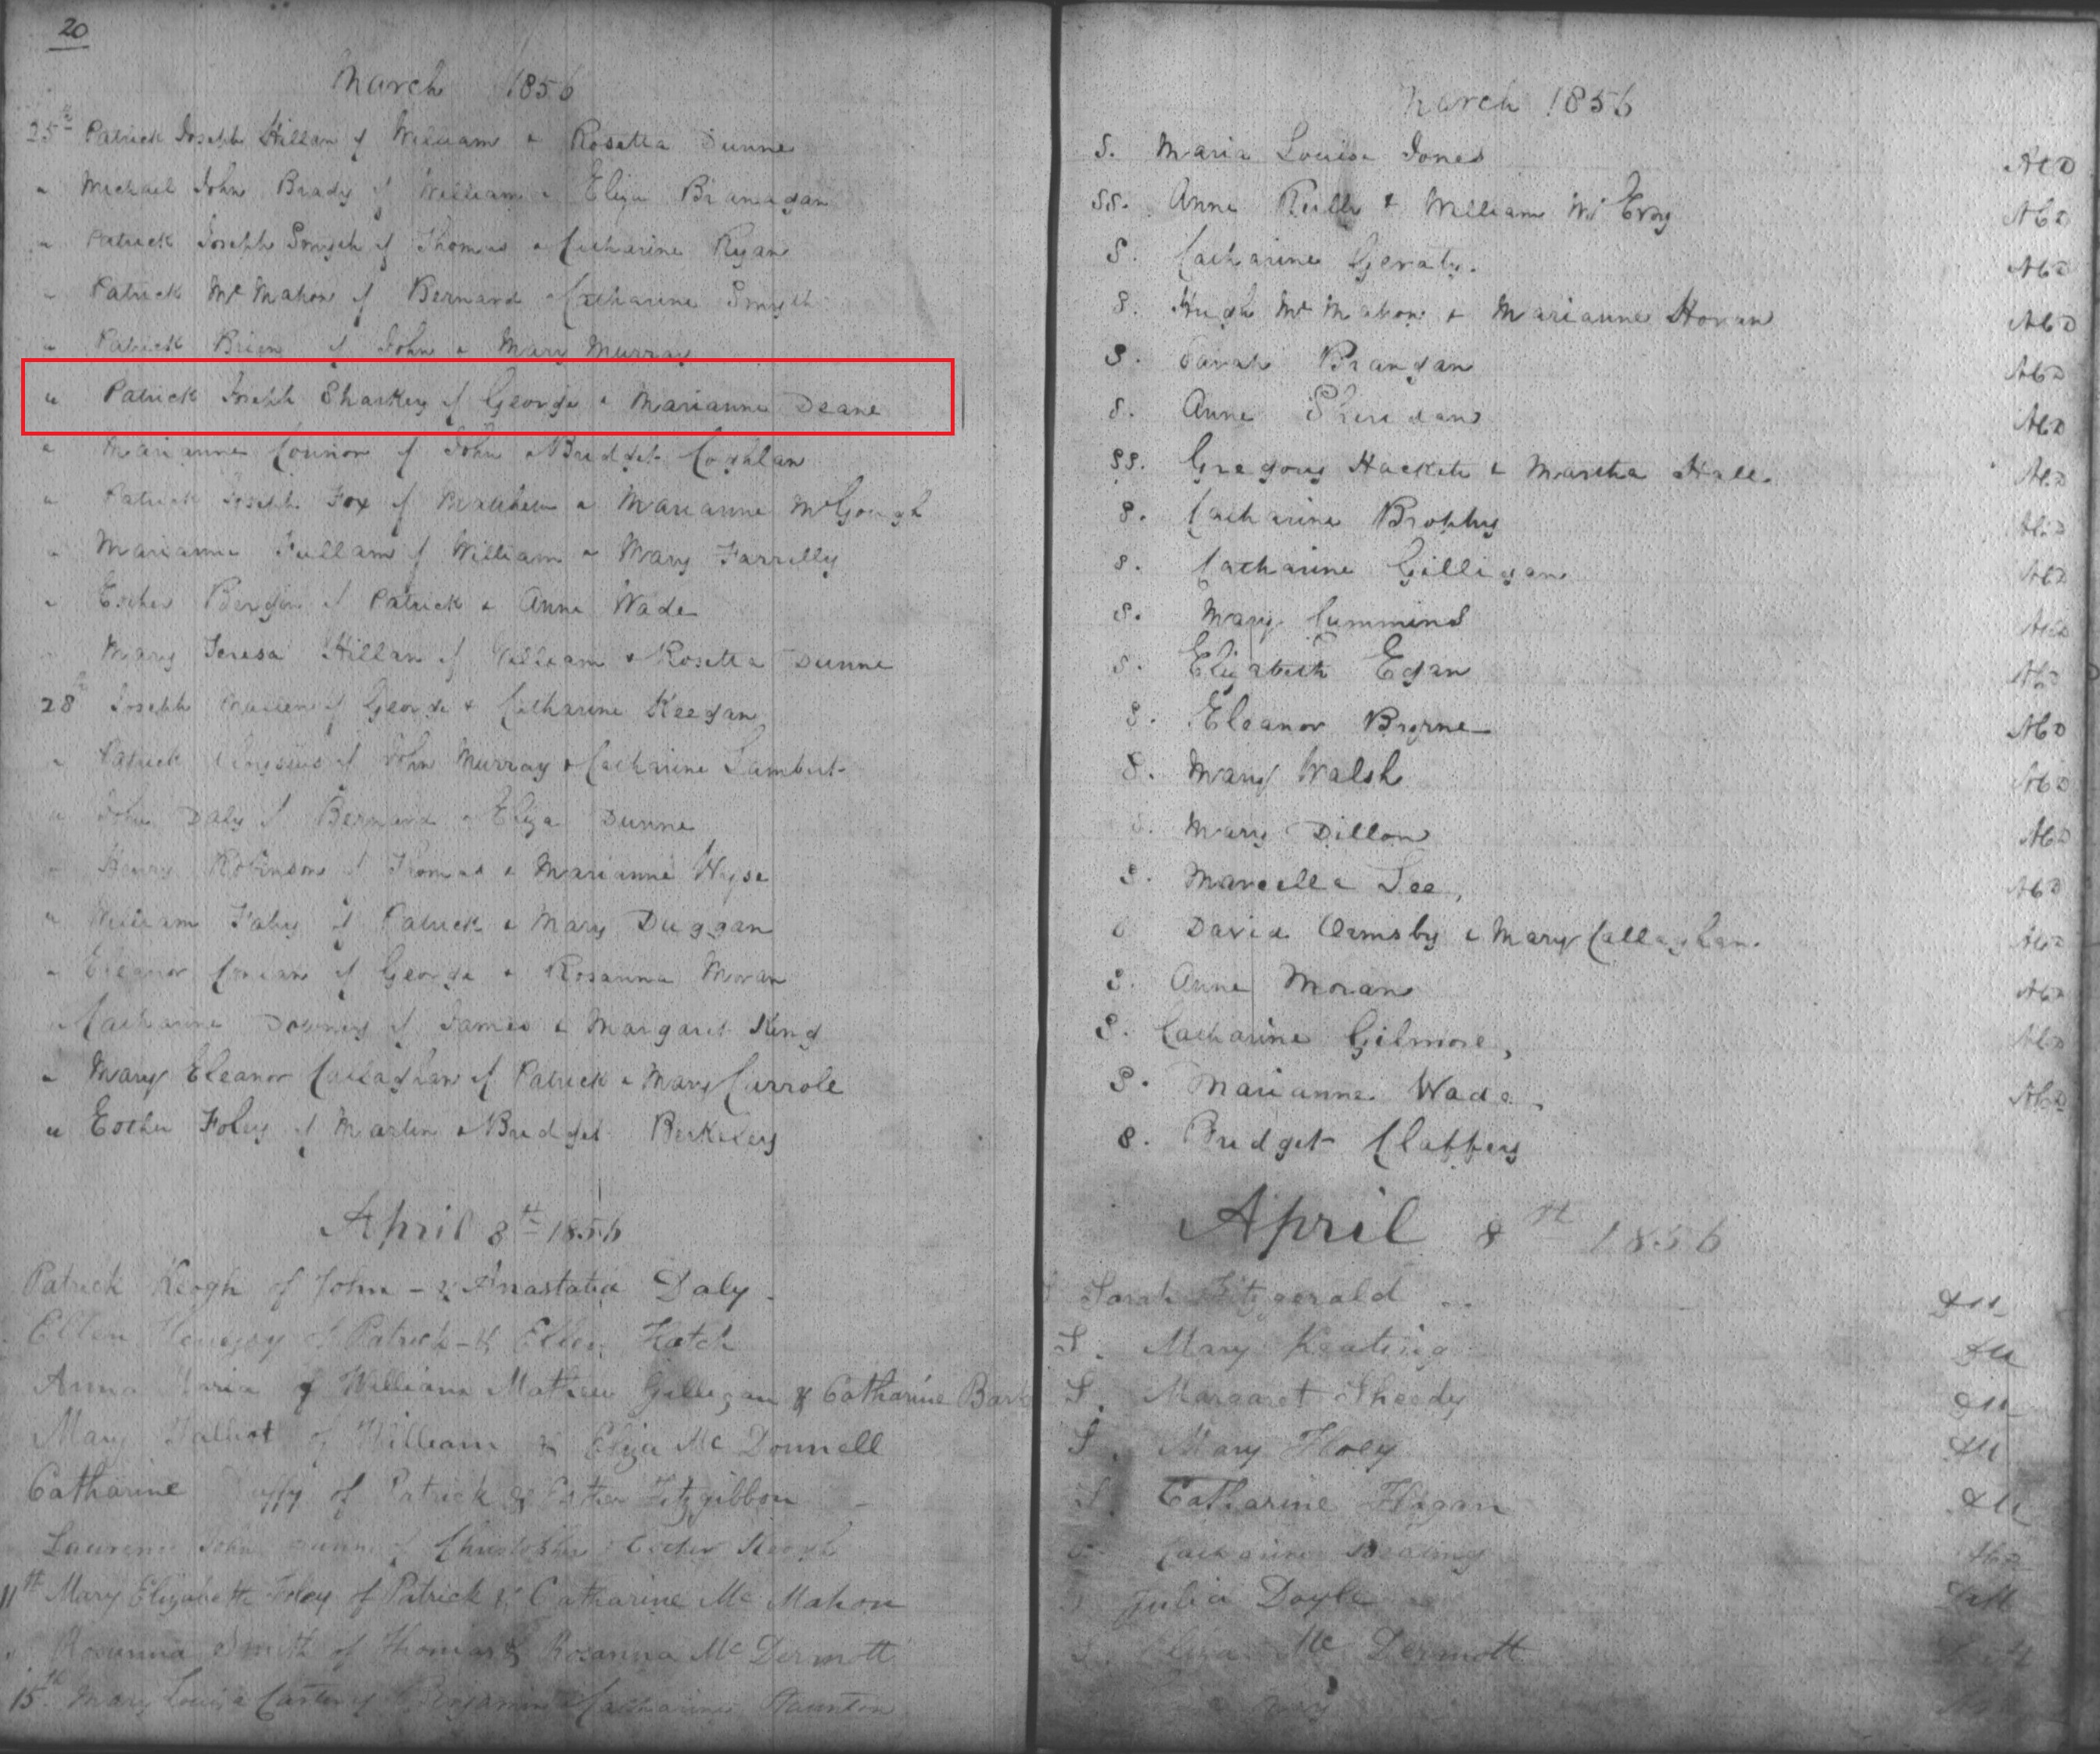 20
March 1856
25th Patrick Joseph Hillan of William & Rosetta Dunne
" Michael John Brady of William & Eliza Branagan
" Patrick Joseph Smyth of Thomas & Catharine Ryan
" Patrick McMahon of Bernard & Catharine Smyth
" Patrick Brien of John & Mary Murray
" Patrick Joseph Sharkey of George & Marianne Deane
" Marianne Connor of John & Bridget Coghlan
" Patrick Joseph Fox of Matthew & Marianne McGough
" Marianne Fullam of William & Mary Farrelly
" Esther Bergin of Patrick & Anne Wade
" Mary Teresa Hillan of William & Rosetta Dunne
28th Joseph of George & Catharine Keegan
" Patrick Aloysius of John Murray & Catharine Lambert
" John Daly of Bernard & Eliza Dunne
" Henry Robinson of Thomas & Marianne Wyse
" William Fahy of Patrick & Mary Duggan
" Eleanor of George & Rosanna Moran
" Catharine Downey of James & Margaret King
" Mary Eleanor Callaghan of Patrick & Mary Carrole
" Esther Foley of Martin & Bridget Berkeley
April 8th 1856
Patrick Keogh of John - & Anastatia Daly -
Ellen of Patrick - & Ellen Hatch
Anna Maria of William Mathew Gilligan & Catharine
Mary Talbot of William & Eliza McDonnell
Catharine Duffy of Patrick & Esther Fitzgibbon -
Laurence John of Christopher & Esther Keogh
11th Mary Elizabeth Foley of Patrick & Catharine McMahon
Rosanna Smith of Thomas & Rosanna McDermott
15th Mary Louisa Carter of Benjamin & Catharine Staunton
March 1856
S. Maria Louisa Jones
SS. Anne Reilly & William McEvoy
S. Catharine Geraty.
S. Hugh McMahon & Marianne Horan
S. Sarah Brangan
S. Anne Sheridan
SS. Gregory Hackett & Martha Hall.
S. Catharine Brophy
S. Catharine Gilligan
S. Mary Cummins
S. Elizabeth Egan
S. Eleanor Byrne
S. Mary Walsh
S. Mary Dillon
S. Marcella Lee,
David Ormsby & Mary Callaghan.
S. Anne Moran
S. Catharine Gilmore,
S. Marianne Wade,
S. Bridget Claffey
April 8th 1856
Sarah Fitzgerald
S. Mary Keating
S. Margaret Sheedy
S. Mary Hoey
S. Catharine
Catharine
S. Julia Doyle
S. Eliza McDermott